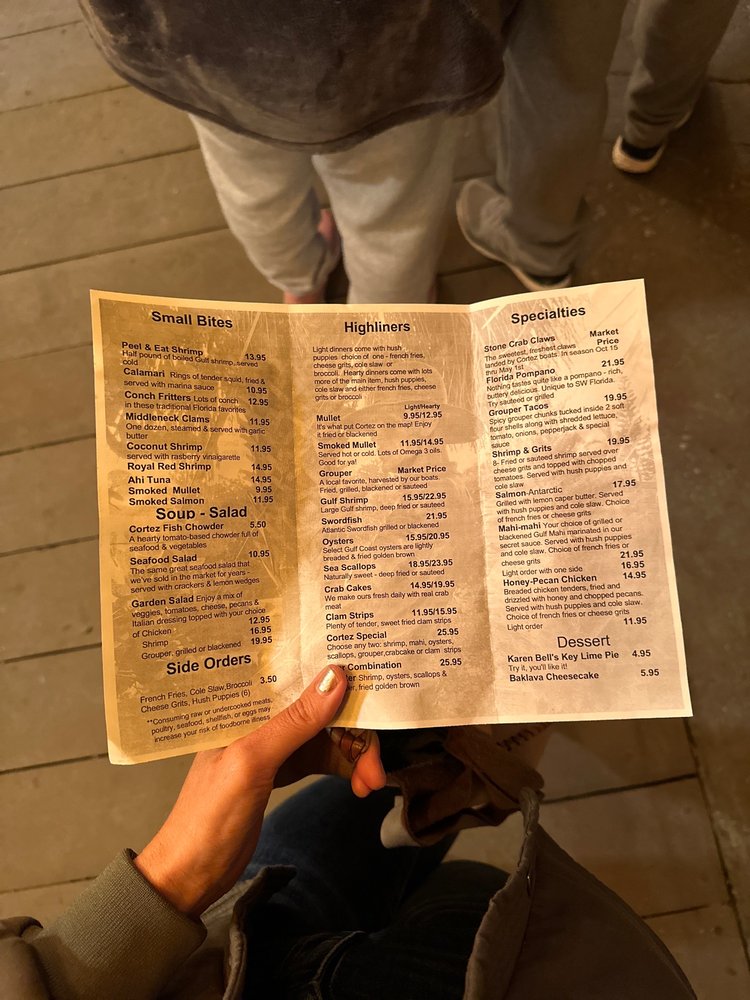 Small Bites
Peel & Eat Shrimp 13.95
Half pound of boiled Gulf shrimp..served
cold
Calamari Rings of tender squid, fried &
served with marina sauce 10.95
Conch Fritters Lots of conch 12.95
in these traditional Florida favorites
Middleneck Clams 11.95
One dozen, steamed & served with garlic
butter
Coconut Shrimp 11.95
served with rasberry vinaigarette
Royal Red Shrimp 14.95
Ahi Tuna 14.95
Smoked Mullet 9.95
Smoked Salmon 11.95
Soup - Salad
Cortez Fish Chowder 5.50
A hearty tomato-based chowder full of
seafood & vegetables
Seafood Salad 10.95
The same great seafood salad that
we've sold in the market for years -
served with crackers & lemon wedges
Garden Salad Enjoy a mix of
veggies, tomatoes, cheese, pecans &
Italian dressing topped with your choice
of Chicken 12.95
Shrimp 16.95
Grouper, grilled or blackened 19.95
Side Orders
French Fries, Cole Slaw,Broccoli 3.50
Cheese Grits, Hush Puppies (6)
**Consuming raw or undercooked meats,
poultry, seafood, shellfish, or eggs may
increase your risk of foodborne illness
Highliners
Light dinners come with hush
puppies choice of one - french fries,
cheese grits, cole slaw or
broccoli. Hearty dinners come with lots
more of the main item, hush puppies,
cole slaw and either french fries, cheese
grits or broccoli
Light/Hearty
Mullet 9.95/12.95
It's what put Cortez on the map! Enjoy
it fried or blackened
Smoked Mullet 11.95/14.95
Served hot or cold. Lots of Omega 3 oils.
Good for ya!
Grouper Market Price
A local favorite, harvested by our boats.
Fried, grilled, blackened or sauteed
Gulf Shrimp 15.95/22.95
Large Gulf shrimp, deep fried or sauteed
Swordfish 21.95
Atlantic Swordfish grilled or blackened
Oysters 15.95/20.95
Select Gulf Coast oysters are lightly
breaded & fried golden brown
Sea Scallops 18.95/23.95
Naturally sweet - deep fried or sauteed
Crab Cakes 14.95/19.95
We make ours fresh daily with real crab
meat
Clam Strips 11.95/15.95
Plenty of tender, sweet fried clam strips
Cortez Special 25.95
Choose any two: shrimp, mahi, oysters,
scallops, grouper,crabcake or clam strips
Combination 25.95
Shrimp, oysters, scallops &
fried golden brown
Specialties
Stone Crab Claws Market
Price
The sweetest, freshest claws
landed by Cortez boats. In season Oct 15
thru May 1st
Florida Pompano 21.95
Nothing tastes quite like a pompano - rich,
buttery delicious. Unique to SW Florida.
Try sauteed or grilled
Grouper Tacos 19.95
Spicy grouper chunks tucked inside 2 soft
flour shells along with shredded lettuce,
tomato, onions, pepperjack & special
sauce
Shrimp & Grits 19.95
8- Fried or sauteed shrimp served over
cheese grits and topped with chopped
tomatoes. Served with hush puppies and
cole slaw
Salmon-Antarctic 17.95
Grilled with lemon caper butter. Served
with hush puppies and cole slaw. Choice
of french fries or cheese grits
Mahi-mahi Your choice of grilled or
blackened Gulf Mahi marinated in our
secret sauce. Served with hush puppies
and cole slaw. Choice of french fries or
cheese grits 21.95
Light order with one side 16.95
Honey-Pecan Chicken 14.95
Breaded chicken tenders, fried and
drizzled with honey and chopped pecans.
Served with hush puppies and cole slaw.
Choice of french fries or cheese grits
Light order 11.95
Dessert
Karen Bell's Key Lime Pie 4.95
Try it, you'll like it!
Baklava Cheesecake 5.95